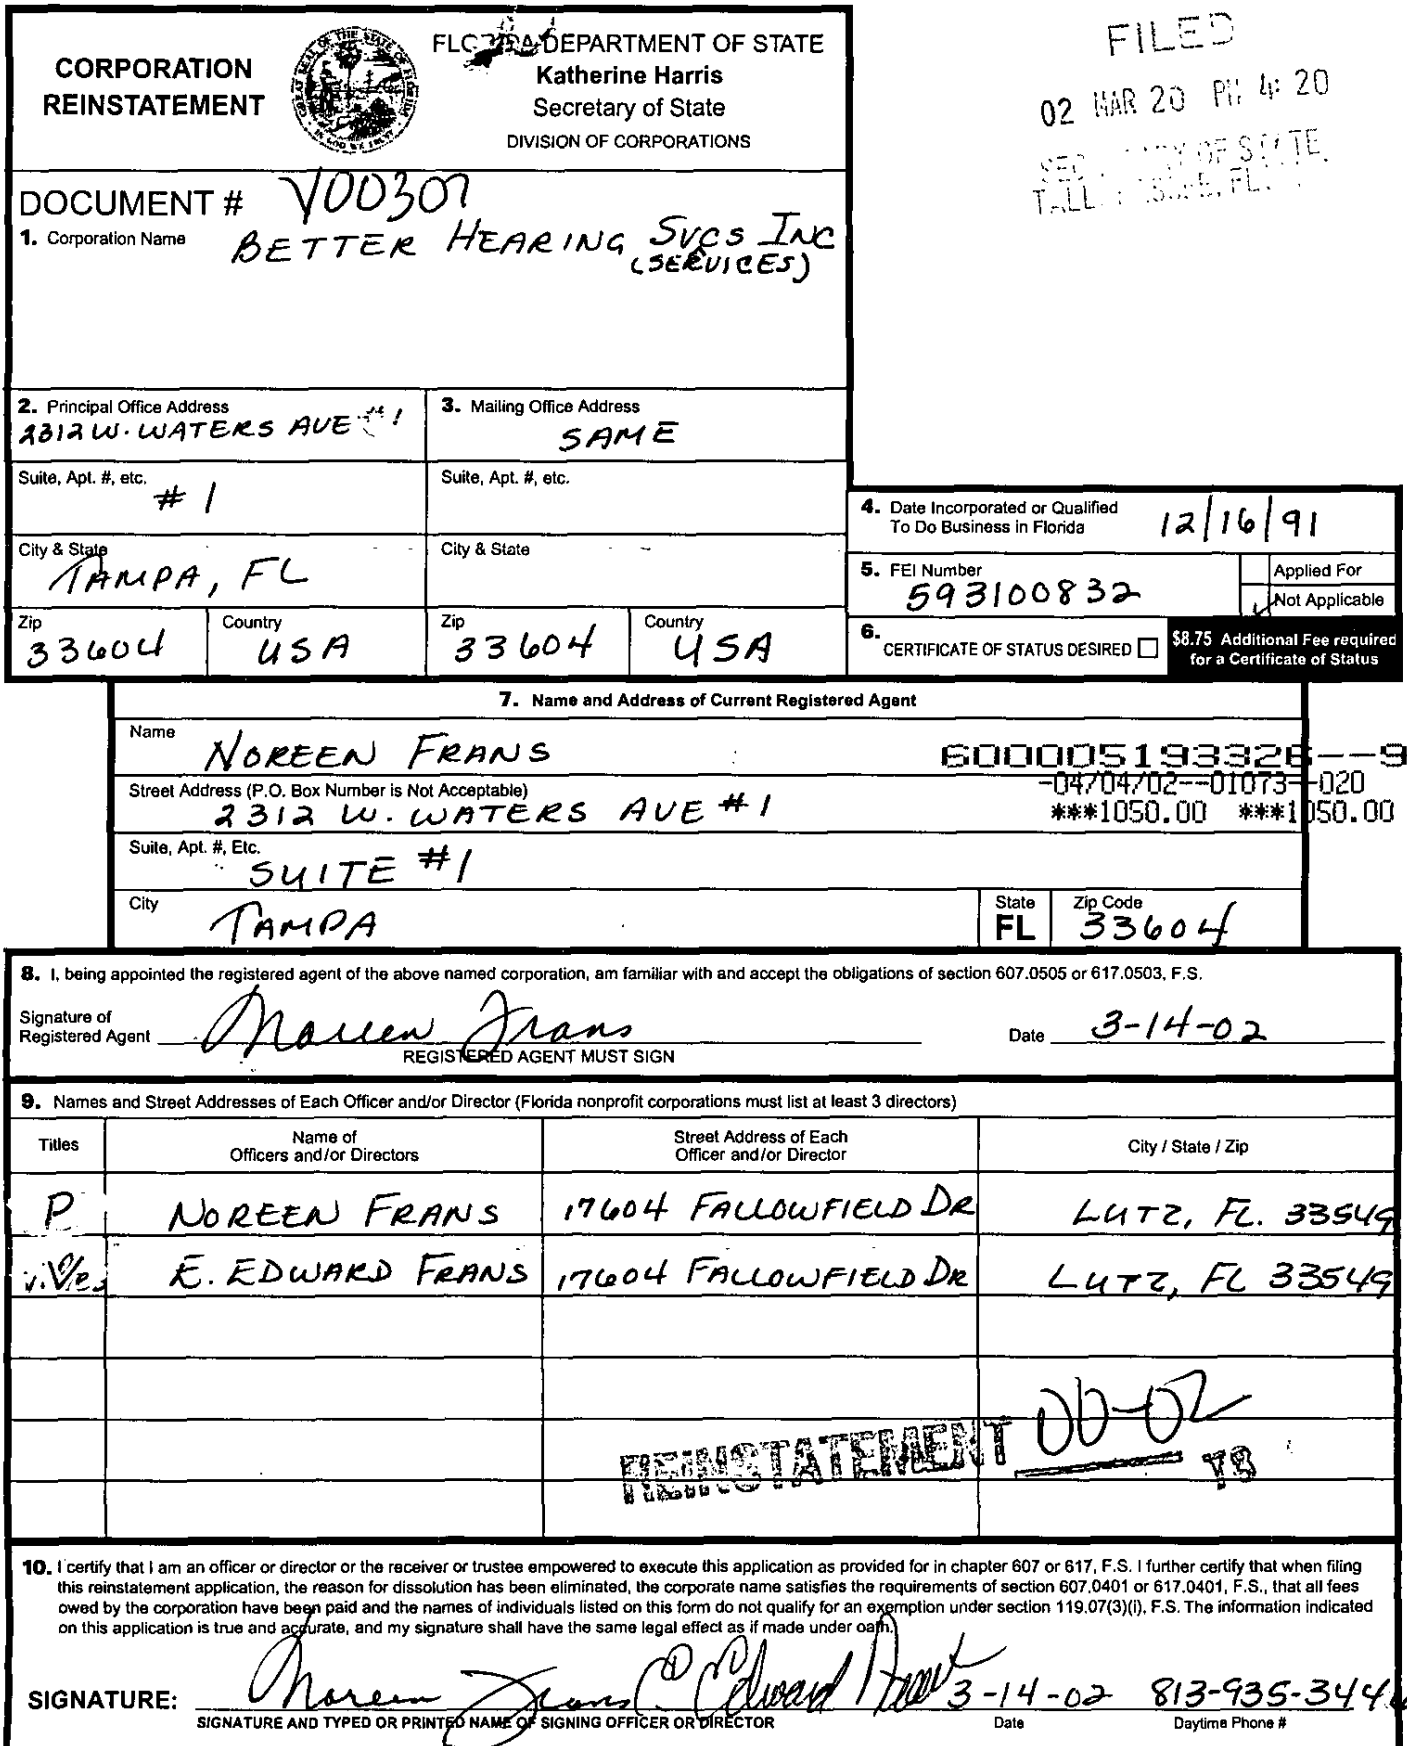 CORPORATION
REINSTATEMENT
GREAT SEAL OF THE STATE OF FLORIDA
IN GOD WE TRUST
DEPARTMENT OF STATE
Katherine Harris
Secretary of State
DIVISION OF CORPORATIONS
FILED
02 MAR 20 PM 4: 20
OF STATE
DOCUMENT # V00307
1. Corporation Name BETTER HEARING SVCS INC
(SERVICES)
2. Principal Office Address
2312 W. WATERS AVE #1
3. Mailing Office Address
SAME
Suite, Apt. #, etc.
# 1
Suite, Apt. #, etc.
City & State
TAMPA, FL
City & State
Zip
33604
Country
USA
Zip
33604
Country
USA
4. Date Incorporated or Qualified
To Do Business in Florida
12/16/91
5. FEI Number
593100832
Applied For
Not Applicable
6. CERTIFICATE OF STATUS DESIRED
$8.75 Additional Fee required
for a Certificate of Status
7. Name and Address of Current Registered Agent
Name
NOREEN FRANS
600005193326--9
-04/04/02--01073--020
***1050.00 ***1050.00
Street Address (P.O. Box Number is Not Acceptable)
2312 W. WATERS AVE #1
Suite, Apt. #, Etc.
SUITE #1
City
TAMPA
State
FL
Zip Code
33604
8. I, being appointed the registered agent of the above named corporation, am familiar with and accept the obligations of section 607.0505 or 617.0503, F.S.
Signature of
Registered Agent Noreen Frans
Date 3-14-02
REGISTERED AGENT MUST SIGN
9. Names and Street Addresses of Each Officer and/or Director (Florida nonprofit corporations must list at least 3 directors)
Titles
Name of
Officers and/or Directors
Street Address of Each
Officer and/or Director
City / State / Zip
P NOREEN FRANS 17604 FALLOWFIELD DR LUTZ, FL. 33549
E. EDWARD FRANS 17604 FALLOWFIELD DR LUTZ, FL 33549
REINSTATEMENT 00-02
TB
10. I certify that I am an officer or director or the receiver or trustee empowered to execute this application as provided for in chapter 607 or 617, F.S. I further certify that when filing
this reinstatement application, the reason for dissolution has been eliminated, the corporate name satisfies the requirements of section 607.0401 or 617.0401, F.S., that all fees
owed by the corporation have been paid and the names of individuals listed on this form do not qualify for an exemption under section 119.07(3)(i), F.S. The information indicated
on this application is true and accurate, and my signature shall have the same legal effect as if made under oath.
SIGNATURE: Noreen Frans E Edward Frans 3-14-02 813-935-344
SIGNATURE AND TYPED OR PRINTED NAME OF SIGNING OFFICER OR DIRECTOR
Date
Daytime Phone #